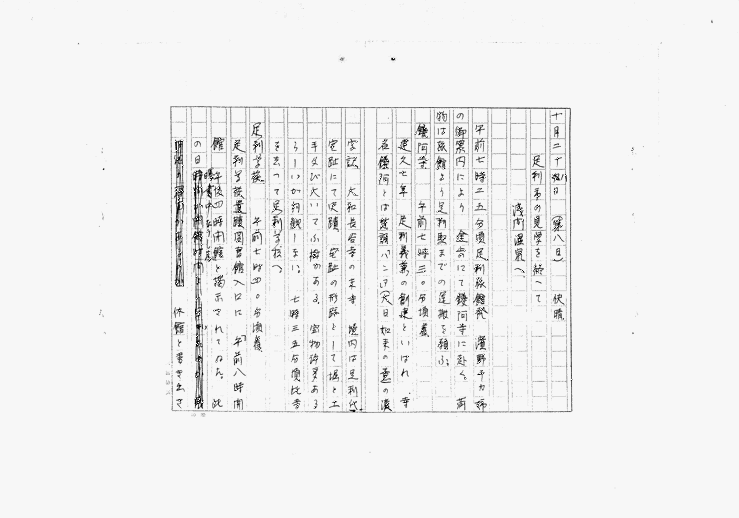 十月二十八日 (第八日) 快晴
足利市の見学を終へて
浅間温泉へ、
午前七時二五分頃足利旅館発
の御案内により 途にて鑁阿寺に赴く。荷
物は旅館より足利駅までの運搬を頼ふ。
鑁阿寺 午前七時三〇分頃着
建久七年 足利義兼の創建といはれ、寺
名鑁阿とは 大日如来の意の
大和長谷寺の末寺 境内は足利代
宅趾にて史蹟 宅趾の形跡として堀と土
手及び大いてふ樹がある。宝物許多ある
らしいが拝観しない。七時三五分頃此寺
を去つて足利学校へ
足利学校 午前七時四〇分頃着
足利学校遺蹟図書館入口に 午前八時開
館 午後四時閉館と掲示されてゐた。此
の日
休館と書き出さ